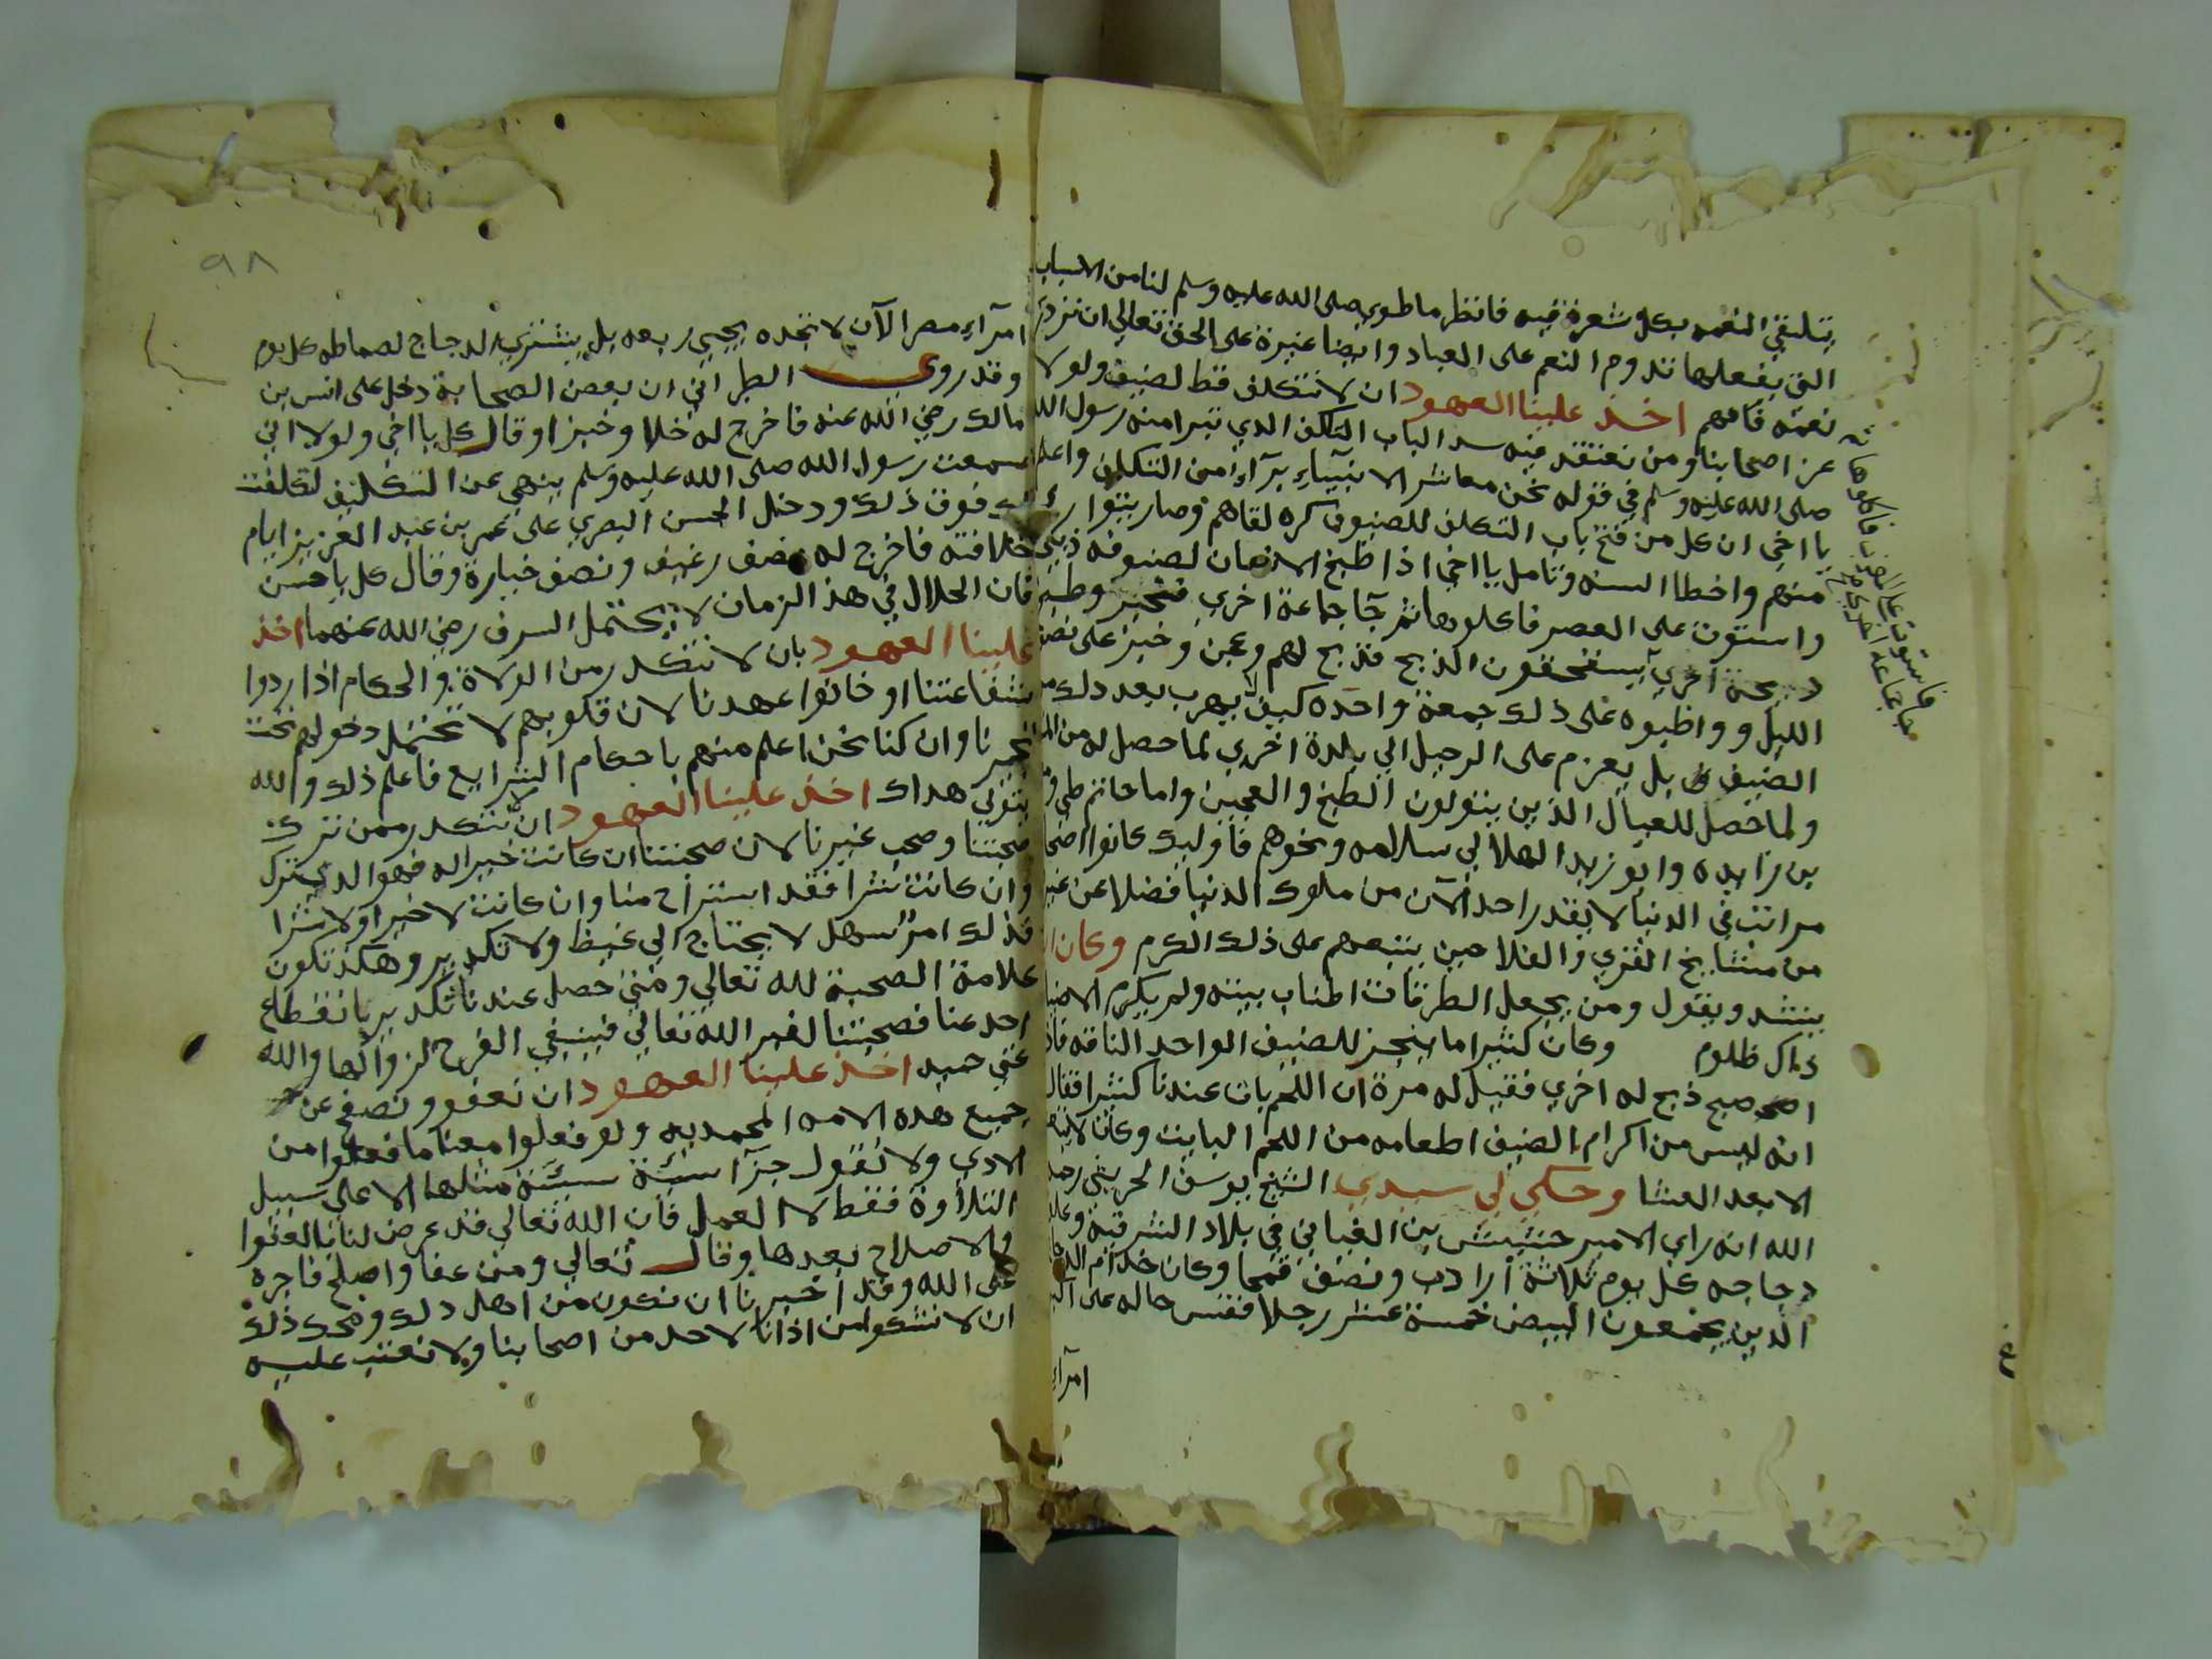 يتلقي النعمه بكل شعرة فيه فانظر ما طوي صلى الله عليه وسلم لنا من الاسباب
التي بفعلها تدوم النعم على العباد وايضا غيرة على الحق تعالي ان نزدري
نعمته فافهم اخذ علينا العهود ان لا نتكلف قط لضيف ولو لا
عز اصحابنا ومن نعتقد فيه سد الباب التكلف الذي تبرا منه رسول الله
صلى الله عليه وسلم في قوله نحن معاشر الانبيآء برآء من التكلف واعلم
يا اخي ان كل من فتح باب التكلف للضيوف كره لقاهم وصار يتوارى
منهم واخطا السنه وتامل يا اخي اذا طبخ الانسان لضيوفه ذبيحة
واستوت على العصر فاكلوها ثم جآ جماعة اخري فخبز وطبخ
ذبيحة اخري يستحقون الذبح فذبح لهم وعجن وخبز على نصف
الليل وواظبوه على ذلك جمعة واحده كيف يهرب بعد ذلك من
الضيف بل يعزم على الرحيل الي بلدة اخري لما حصل له من
ولما حصل للعيال الذين يتولون الطبخ والعجين واما حاتم طي
بن زايده وابو زيد الهلالي سلامه ونحوهم فاوليك كانوا اصحاب
مراتب في الدنيا لا يقدر احد الآن من ملوك الدنيا فضلا عن غيرهم
من مشايخ القري والفلاحين يتبعهم على ذلك الكرم وكان
ينشد ويقول ومن يجعل الطرقات اطناب بيته ولم يكرم الاضياف
ذاك ظلوم وكان كثيرا ما ينحر للضيف الواحد الناقه فاذا
اصبح ذبح له اخري فقيل له مرة ان اللحم بات عندنا كثيرا فقال
انه ليس من اكرام الضيف اطعامه من اللحم البايت وكان لا
الا بعد العشا وحكي لي سيدي الشيخ يوسف الحريثي رحمه
الله انه راي الامير بن الغباني في بلاد الشرقية وعليق
دجاجه كل يوم ثلاثة ارادب ونصف قمحا وكان خدام الدجاج
الذين يجمعون البيض خمسة عشر رجلا فقس حاله على اكبر
امرآء
فاستوت على المغرب فاكلوها ثم
جا جماعة اخري
٩٨
امرآء مصر الآن لا تجده يجيي ربعه بل يشتري الدجاج لسماطه كل يوم
وقد روي الطبراني ان بعض الصحابة دخل على انس بن
مالك رضي الله عنه فاخرج له خلا وخبزا وقال كل يا اخي ولولا اني
سمعت رسول الله صلى الله عليه وسلم ينهي عن التكليف لتكلفت
لك فوق ذلك ودخل الحسن البصري على عمر بن عبد العزيز ايام
خلافته فاخرج له نصف رغيف ونصف خيارة وقال كل يا حسن
فان الحلال في هذا الزمان لا يحتمل السرف رضي الله عنهما اخذ
علينا العهود بان لا نتكدر من الولاة والحكام اذا ردوا
شفاعتنا او خانوا عهدنا لان قلوبهم لا تحتمل دخولهم تحت
وان كنا نحن اعلم منهم باحكام الشرايع فاعلم ذلك والله
يتولي هداك اخذ علينا العهود ان لا نتكدر ممن ترك
صحبتنا وصحب غيرنا لان صحبتنا ان كانت خيرا له فهو الذي ترك
وان كانت شرا فقد استراح منا وان كانت لا خيرا ولا شرا
فذلك امر سهل لا يحتاج الي غيظ ولا تكدير وهكذا تكون
علامة الصحبة لله تعالي ومتي حصل عندنا تكدير بانقطاع
احد عنا فصحبتنا لغير الله تعالي فينبغي الفرح لزوالها والله
غني حميد اخذ علينا العهود ان نعفو ونصفح عن
جميع هذه الامه المحمديه ولو فعلوا معنا ما فعلوا من
الاذي ولا نقول جزآ سيئة سيئة مثلها الا على سبيل
التلاوة فقط لا العمل فان الله تعالي قد عرض لنا بالعفوا
والاصلاح بعدها وقال تعالي ومن عفا واصلح فاجره
على الله وقد اخبرنا ان نكون من اهل ذلك ونحو ذلك
ان لا نشكوا من اذانا لاحد من اصحابنا ولا نعتب عليه